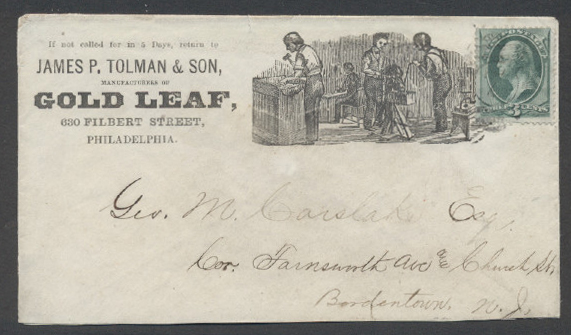 If not called for in 5 Days, return to
JAMES P. TOLMAN & SON,
MANUFACTURERS OF
GOLD LEAF,
630 FILBERT STREET,
PHILADELPHIA.
POSTAGE
THREE 3 CENTS
Geo. M. Carslake Esq.
Cor. Farnsworth Ave & Church St.
Bordentown, N. J.